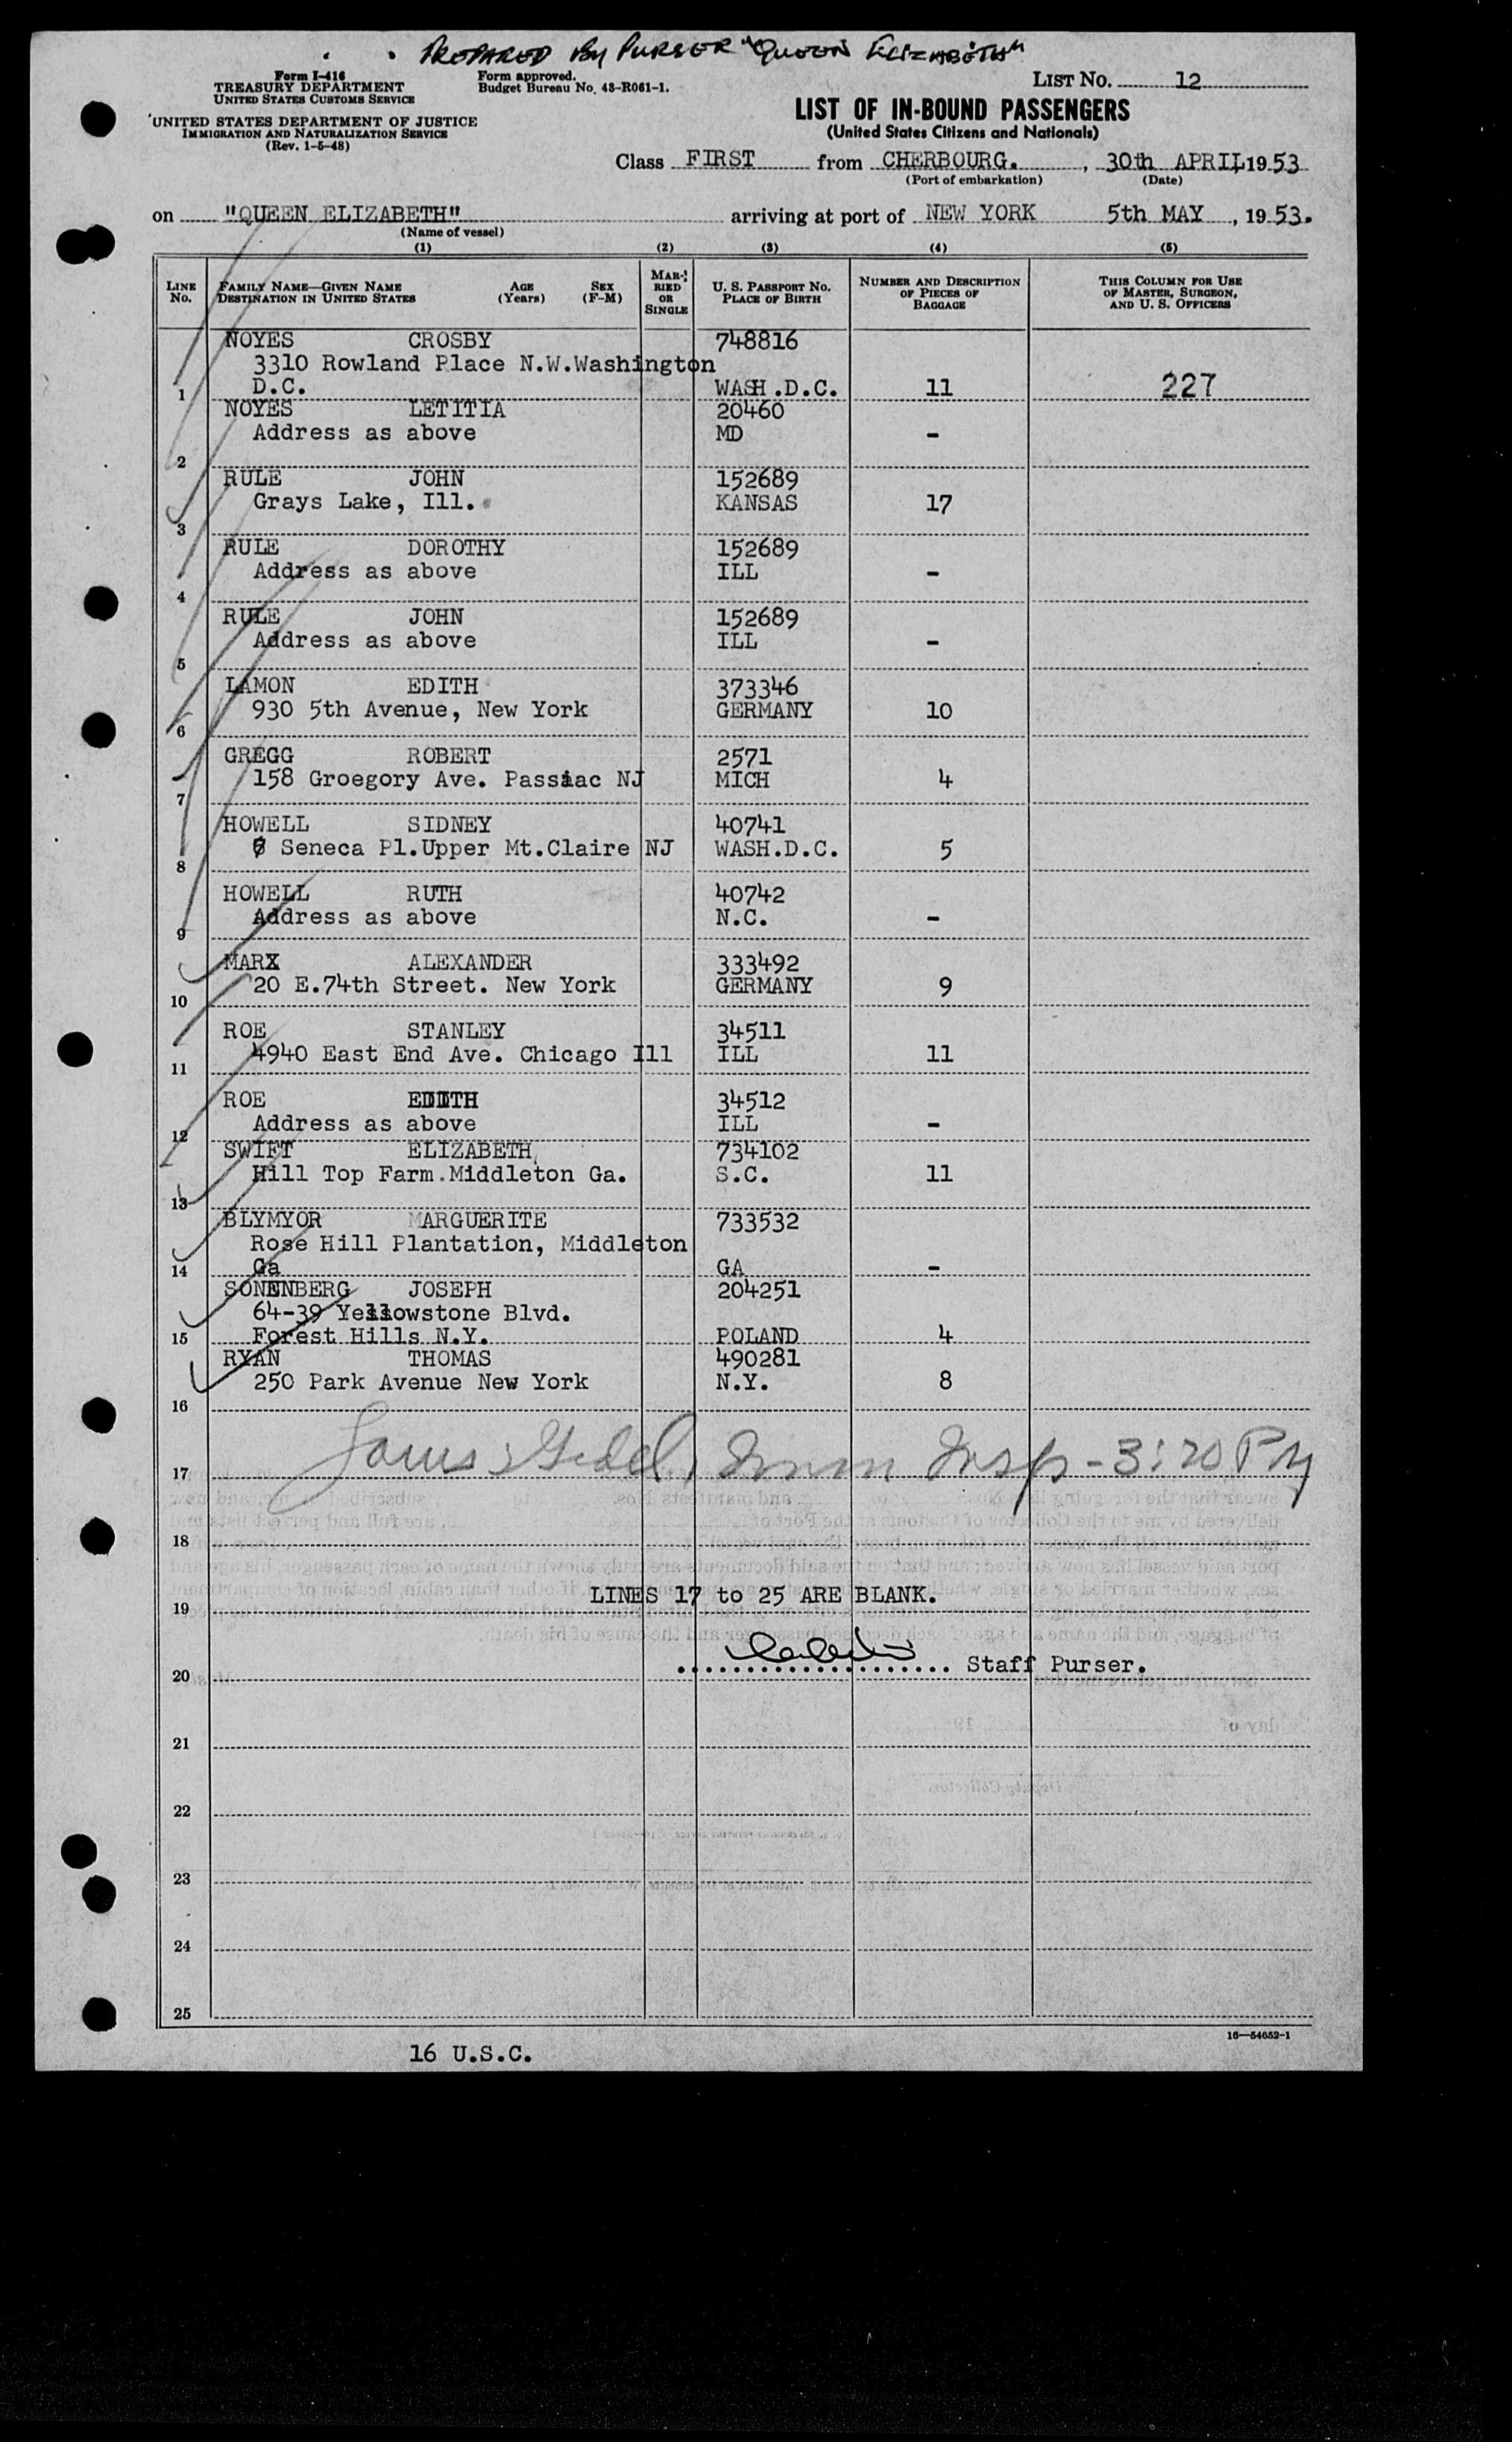 PREPARED By PURSER "QUEEN ELIZABETH"
Form I-416
TREASURY DEPARTMENT
UNITED STATES CUSTOMS SERVICE
Form approved.
Budget Bureau No. 43-R061-1.
LIST NO. 12
UNITED STATES DEPARTMENT OF JUSTICE
IMMIGRATION AND NATURALIZATION SERVICE
(Rev. 1-5-48)
LIST OF IN-BOUND PASSENGERS
(United States Citizens and Nationals)
Class FIRST from CHERBOURG. , 30th APRIL, 1953
(Port of embarkation) (Date)
on "QUEEN ELIZABETH" arriving at port of NEW YORK 5th MAY , 1953.
(Name of vessel)
(1) (2) (3) (4) (5)
LINE NO. FAMILY NAME—GIVEN NAME DESTINATION IN UNITED STATES AGE (Years) SEX (F-M) MARRIED OR SINGLE U. S. PASSPORT NO. PLACE OF BIRTH NUMBER AND DESCRIPTION OF PIECES OF BAGGAGE THIS COLUMN FOR USE OF MASTER, SURGEON, AND U. S. OFFICERS
NOYES CROSBY 748816
3310 Rowland Place N.W.Washington
1 D.C. WASH.D.C. 11 227
NOYES LETITIA 20460
Address as above MD -
2
RULE JOHN 152689
Grays Lake, Ill. KANSAS 17
3
RULE DOROTHY 152689
Address as above ILL -
4
RULE JOHN 152689
Address as above ILL -
5
LAMON EDITH 373346
930 5th Avenue, New York GERMANY 10
6
GREGG ROBERT 2571
158 Groegory Ave. Passiac NJ MICH 4
7
HOWELL SIDNEY 40741
Seneca Pl.Upper Mt.Claire NJ WASH.D.C. 5
8
HOWELL RUTH 40742
Address as above N.C. -
9
MARX ALEXANDER 333492
20 E.74th Street. New York GERMANY 9
10
ROE STANLEY 34511
4940 East End Ave. Chicago Ill ILL 11
11
ROE EDITH 34512
Address as above ILL -
12
SWIFT ELIZABETH 734102
Hill Top Farm.Middleton Ga. S.C. 11
13
BLYMYOR MARGUERITE 733532
Rose Hill Plantation, Middleton
14 Ga GA -
SONENBERG JOSEPH 204251
64-39 Yellowstone Blvd.
15 Forest Hills N.Y. POLAND 4
RYAN THOMAS 490281
250 Park Avenue New York N.Y. 8
16
Imm Insp - 3:20 PM
17
18
LINES 17 to 25 ARE BLANK.
19
.................... Staff Purser.
20
21
22
23
24
25
16—54652-1
16 U.S.C.